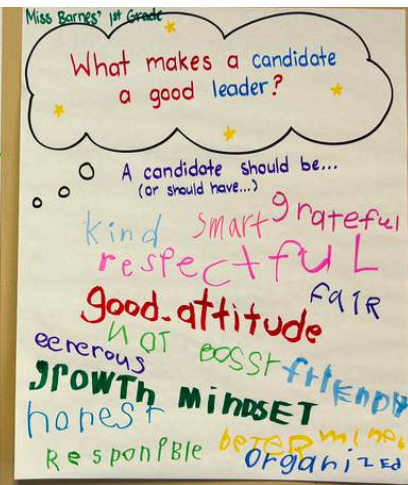 Miss Barnes' 1st Grade
What makes a candidate
a good leader?
A candidate should be...
(or should have...)
kind smart grateful
respectfuL
good attitude FAIR
NOT BOSSY friENDly
generous
growTh minDSET
honest DETERmineD
ResponIBLe organizEd